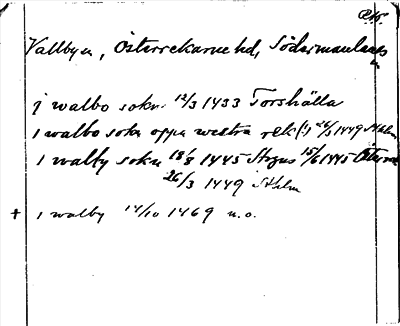 Vallby sn, Österrekarne hd, Södermanlands
n
j walbo sokn 12/3 1433 Torshälla
i walbo sokn oppa westra rek (!) 26/3 1449 Sthlm
i walby sokn 18/8 1445 15/6 1445 Österre
26/3 1449 Sthlm
+ i walby 14/10 1469 u.o.